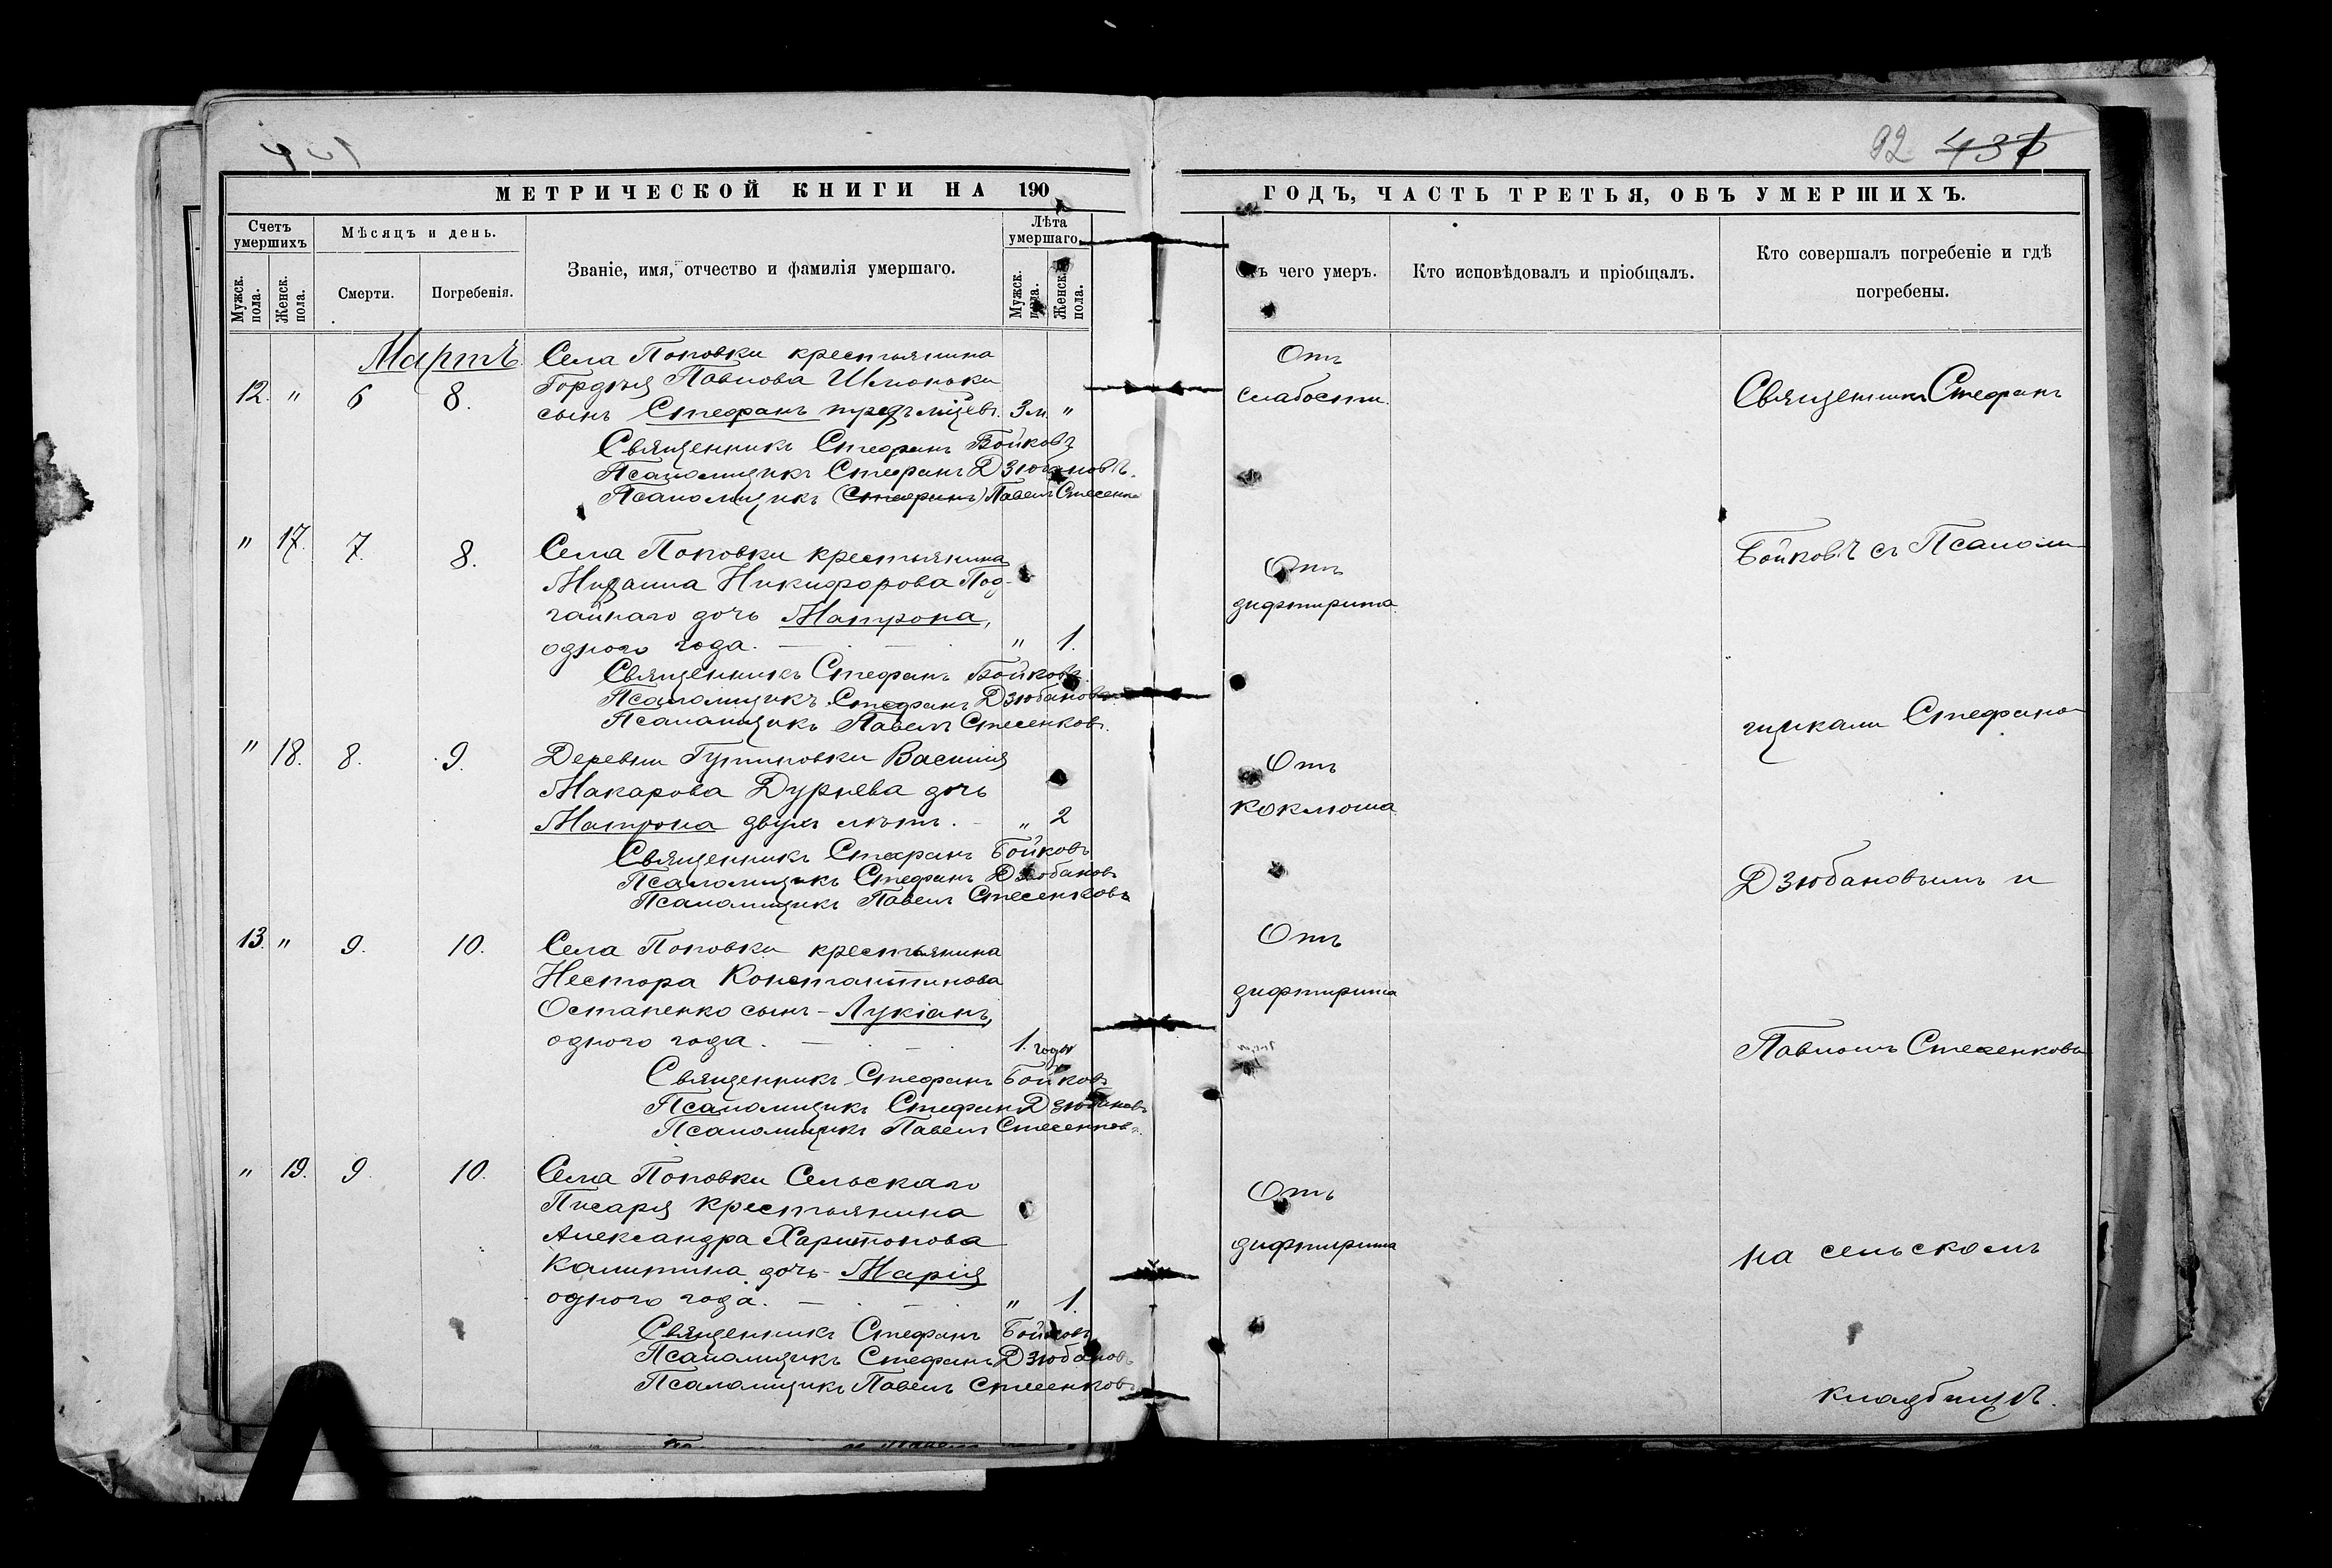 92 437
МЕТРИЧЕСКОЙ КНИГИ НА 190
ГОДЪ, ЧАСТЬ ТРЕТЬЯ, ОБЪ УМЕРШИХЪ.
Счетъ умершихъ
Мужск. пола.
Женск. пола.
Мѣсяцъ и день.
Смерти.
Погребенія.
Званіе, имя, отчество и фамилія умершаго.
Лѣта умершаго.
Мужск. пола.
Женск. пола.
чего умеръ.
Кто исповѣдовалъ и пріобщалъ.
Кто совершалъ погребеніе и гдѣ
погребены.
Мартъ
12. " 6 8.
Села Поповки крестьянина
Гордѣя Павлова
сынъ Стефанъ 3 м. "
Священникъ Стефанъ Бойковъ
Псаломщикъ Стефанъ Дзюбановъ.
Псаломщикъ (Стефанъ) Павелъ
Отъ
слабости.
" 17. 7. 8.
Села Поповки крестьянина
Михаила Никифорова Под-
гайнаго дочь Матрона,
одного года. " 1.
Священникъ Стефанъ Бойковъ.
Псаломщикъ Стефанъ Дзюбановъ
Псаломщикъ Павелъ Стесенковъ.
Отъ
дифтирита.
" 18. 8. 9.
Деревни Василія
Макарова Дурнева дочь
Матрона двухъ лѣтъ. " 2
Священникъ Стефанъ Бойковъ
Псаломщикъ Стефанъ Дзюбановъ
Псаломщикъ Павелъ Стесенковъ
Отъ
коклюша.
13. " 9. 10.
Села Поповки крестьянина
Нестора Константинова
Остапенко сынъ - Лукіанъ,
одного года. 1. годъ
Священникъ Стефанъ Бойковъ
Псаломщикъ Стефанъ Дзюбановъ
Псаломщикъ Павелъ Стесенковъ.
Отъ
дифтирита
" 19. 9. 10.
Села Поповки Сельскаго
Писаря крестьянина
Александра Харитонова
Калитина дочь - Марія
одного года. " 1.
Священникъ Стефанъ Бойковъ
Псаломщикъ Стефанъ Дзюбановъ
Псаломщикъ Павелъ Стесенковъ
Отъ
дифтирита
Священникъ Стефанъ
Бойковъ съ Псалом-
щиками Стефано-
Дзюбановымъ и
Павломъ Стесенковы
на сельскомъ
кладбищѣ.